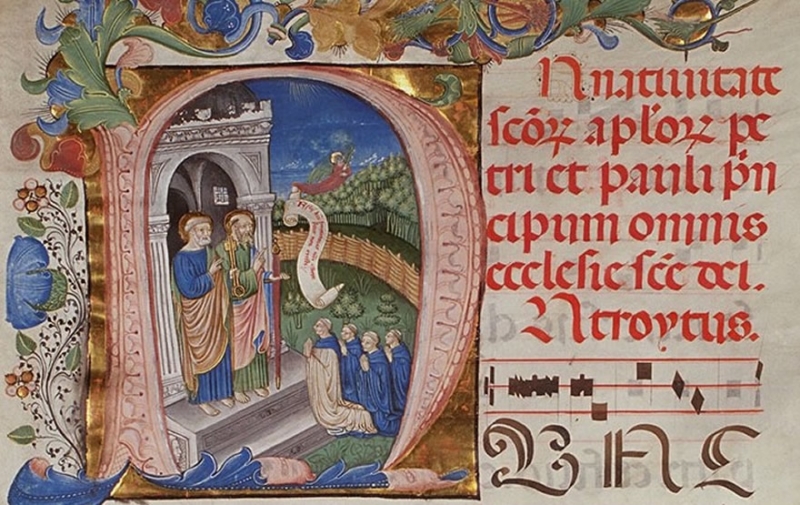 In natiuitate
scōꝝ aplōꝝ pe
tri et pauli p̄n
cipum omnis
ecclesie scē dei.
Introytus.
UNC